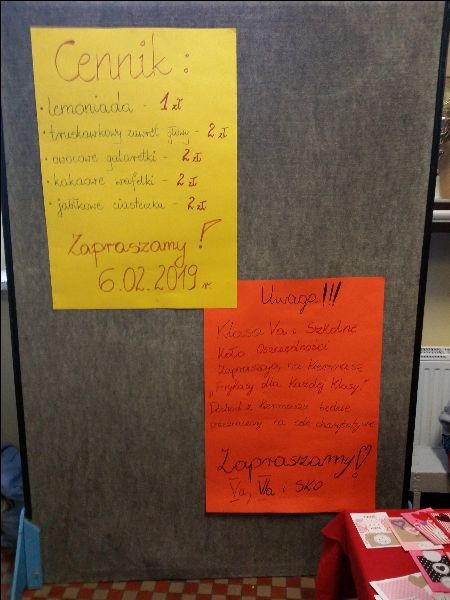 Cennik:
• lemoniada - 1 zł
• truskawkowy zawrót głowy - 2 zł
• owocowe galaretki - 2 zł
• kakaowe wafelki - 2 zł
• jabłkowe ciasteczka - 2 zł
Zapraszamy!
6.02.2019 r.
Uwaga!!!
Klasa Va i Szkolne
Koło Oszczędności
Zapraszają na kiermasz
„Frykasy dla każdej klasy."
Dochód z kiermaszu będzie
przeznaczony na cele charytatywne
Zapraszamy!
Va, VIa i SKO